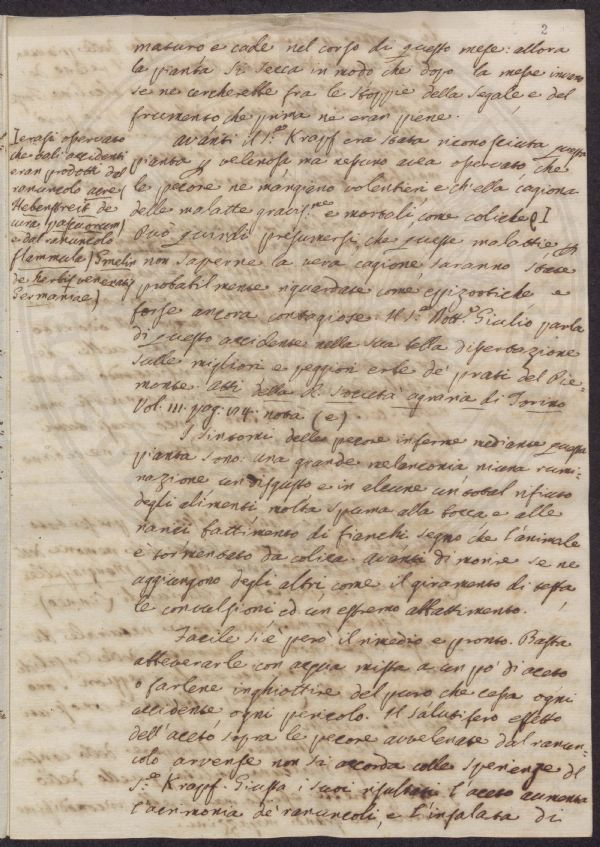 2
maturo e cade nel corso di questo mese: allora
la pianta si secca in modo che dopo la messe invano
se ne cercherebbe fra le stoppie della segale e del
frumento che prima ne eran piene.
Avanti il S.r Krapf era stata riconosciuta questa
pianta p velenosa ma nessuno avea osservato che
le pecore ne mangino volentieri e ch'ella cagiona
delle malattie graviss.me e mortali, come coliche
Può quindi presumersi, che queste malattie p
non saperne la vera cagione saranno state
probabilmente riguardate come epizootiche e
forse ancora contagiose. Il S.r Dott.r Giulio parla
di questo accidente nella sua bella dissertazione
sulle migliori e peggiori erbe de' prati del Pie-
monte. Atti della R. Società agraria di Torino
Vol. III. pag. nota (e)
I sintomi delle pecore inferme mediante questa
pianta sono: una grande melanconia niuna rumi-
nazione un disgusto e in alcune un total rifiuto
degli alimenti molta spuma alla bocca e alle
narici battimento di fianchi segno che l'animale
è tormentato da colica. Avanti di morire se ne
aggiungono degli altri come il giramento di testa,
le convulsioni ed un estremo abbattimento.
Facile si è però il rimedio e pronto. Basta
abbeverarle con acqua mista a un pò di aceto
o farlene inghiottire del puro che cessa ogni
accidente ogni pericolo. Il salutifero effetto
dell'aceto sopra le pecore avvelenate dal ranun-
colo arvense non si accorda colle sperienze del
S.r Krapf. Giusta i suoi risultati l'aceto aumenta
l'acrimonia de' ranuncoli, e l'insalata di
I erasi osservato
che tali accidenti
eran prodotti dal
ranuncolo acre (
Hebenstreit de
cura pascuorum)
e dal ranuncolo
flammula (Gmelin
de herbis venenatis
Germaniae)